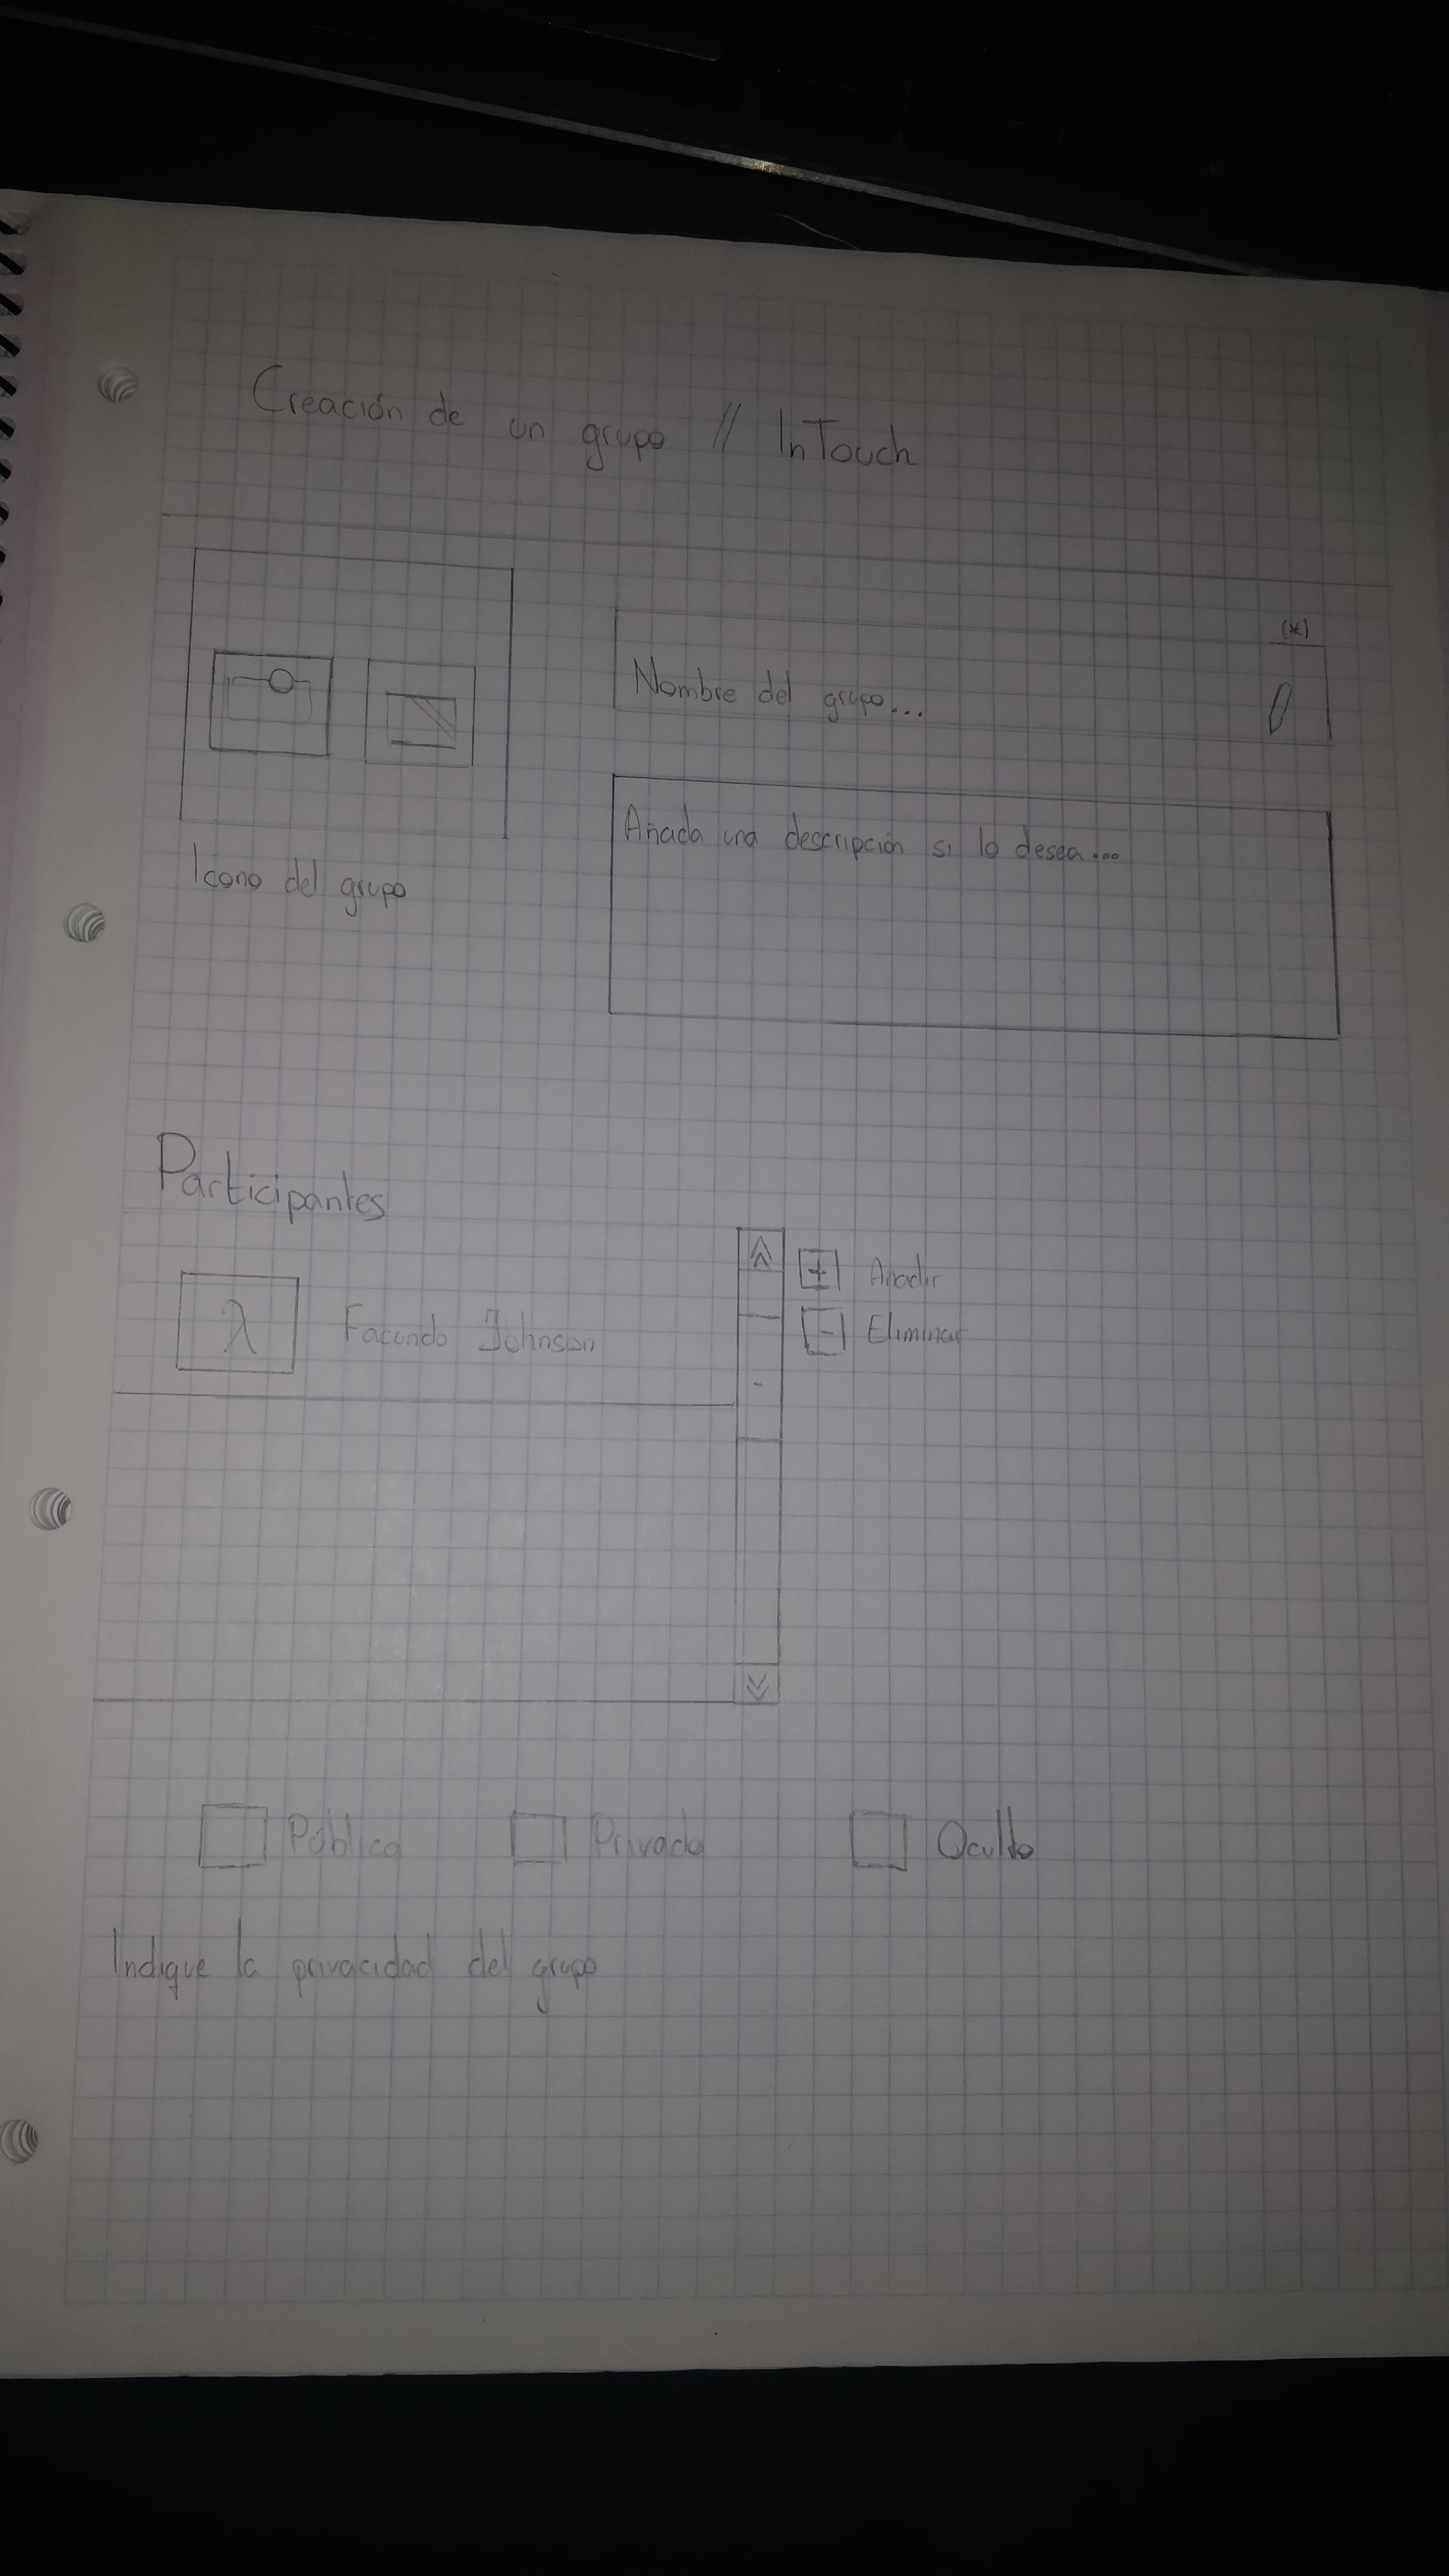 Creación de un grupo // InTouch
(*)
Nombre del grupo...
Añada una descripción si lo desea...
Icono del grupo
Participantes
+ Añadir
λ Facundo Johnson
- Eliminar
Público Privado Oculto
Indique la privacidad del grupo